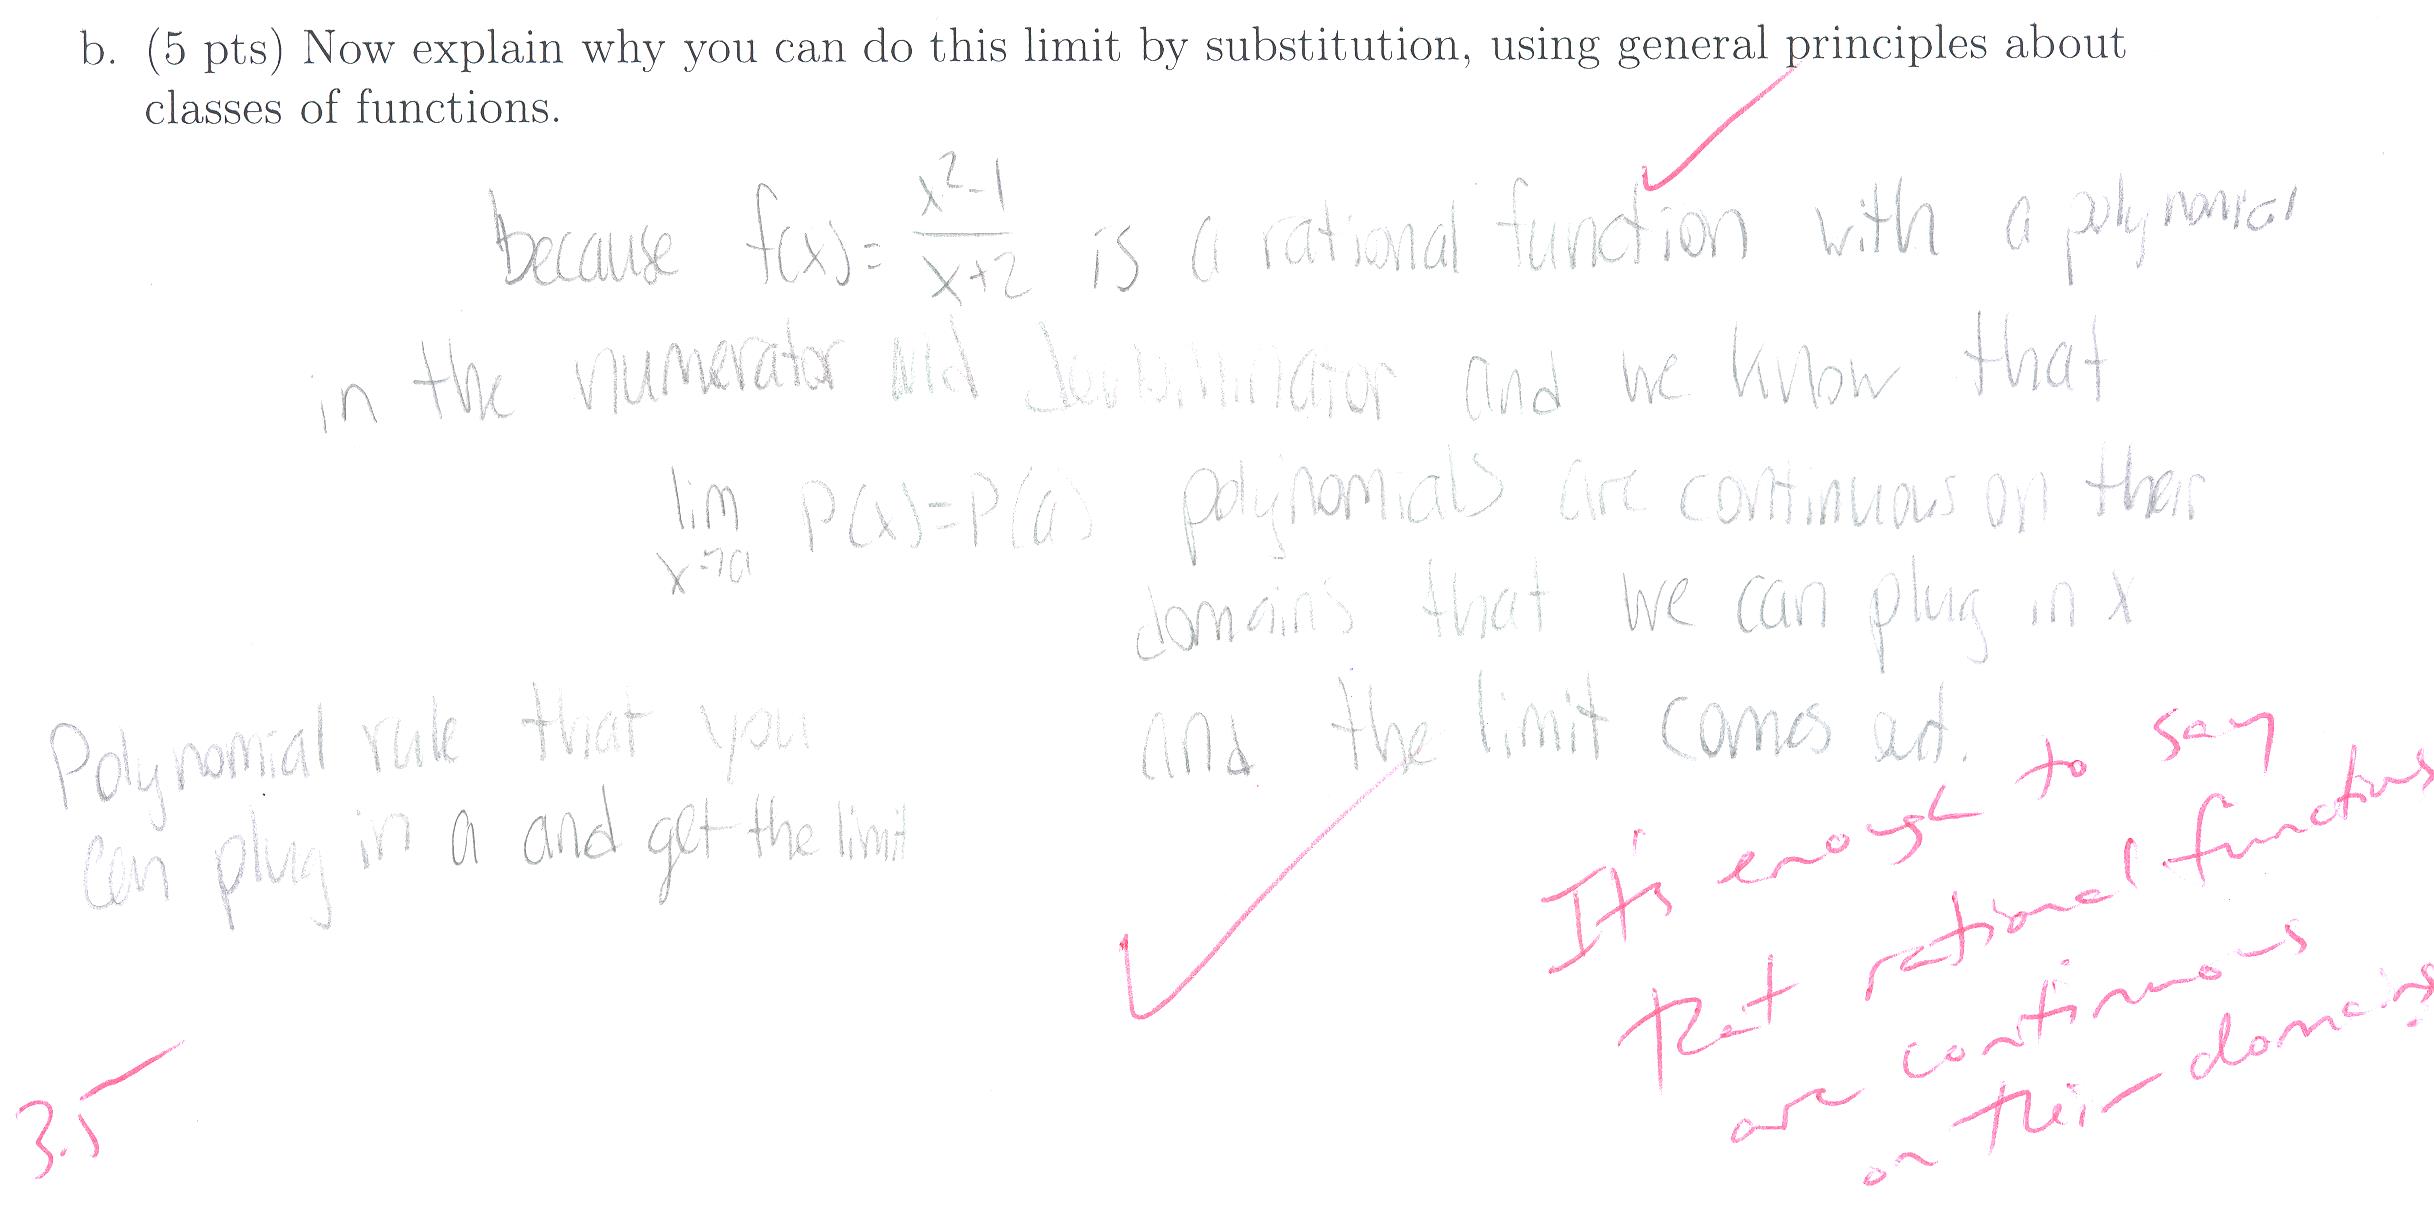 b. (5 pts) Now explain why you can do this limit by substitution, using general principles about
classes of functions.
because f(x) = x²-1 / x+2 is a rational function with a polynomial
in the numerator and denominator and we know that
lim x→a P(x)=P(a) polynomials are continuous on their
domains that we can plug in x
and the limit comes out.
Polynomial rule that you
can plug in a and get the limit
It's enough to say
that rational functions
are continuous
on their domains.
3.5